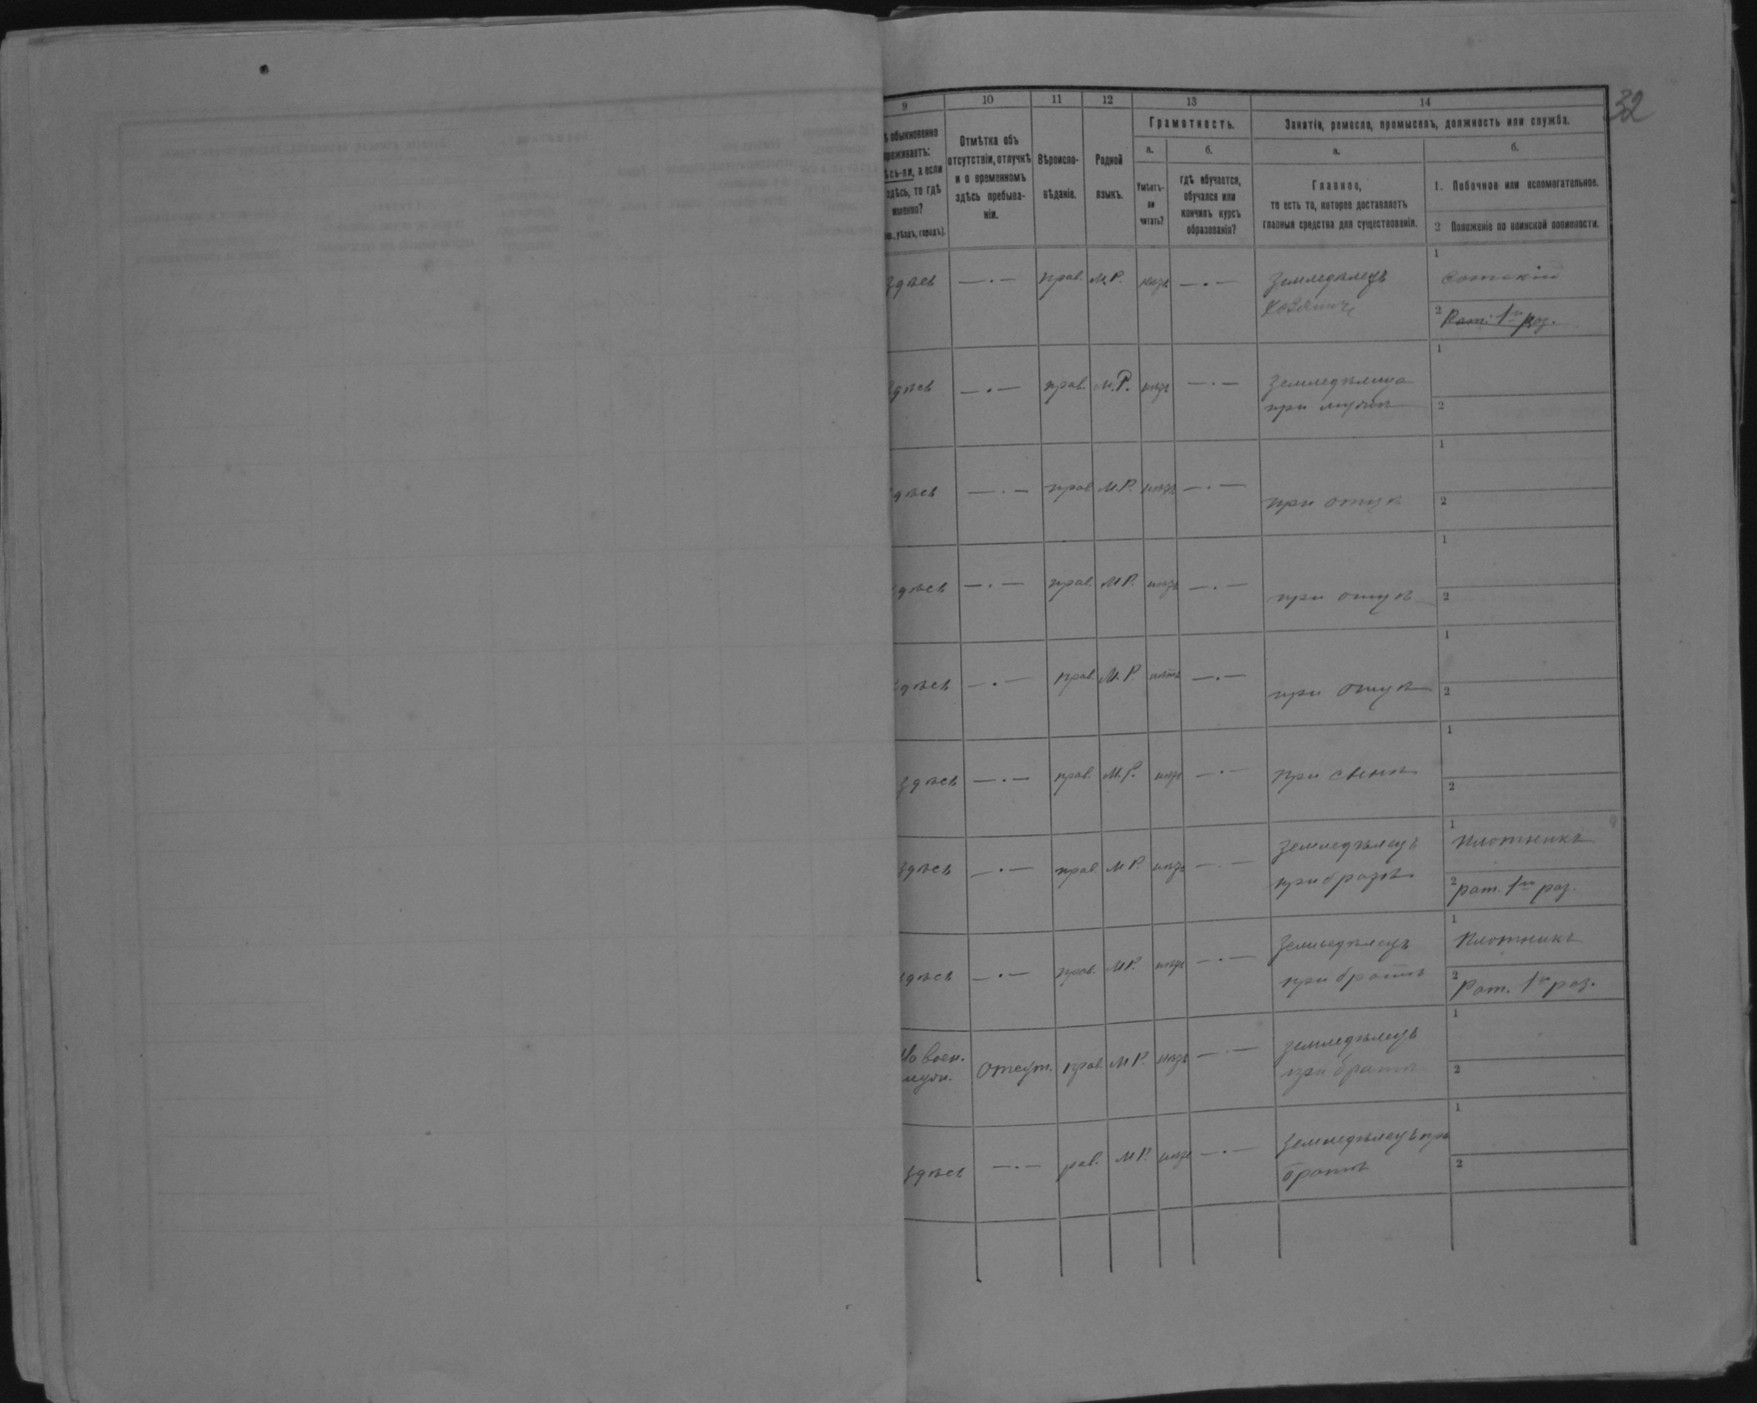 32
9 10 11 12 13 14
обыкновенно
проживаетъ:
здѣсь-ли, а если
здѣсь, то гдѣ
именно?
уѣздъ, городъ).
Отмѣтка объ
отсутствіи, отлучкѣ
и о временномъ
здѣсь пребыва-
ніи.
Вѣроиспо-
вѣданіе.
Родной
языкъ.
Грамотность.
а.
Умѣетъ-
ли
читать?
б.
гдѣ обучается,
обучался или
кончилъ курсъ
образованія?
Занятіе, ремесло, промыселъ, должность или служба.
а.
Главное,
то есть то, которое доставляетъ
главныя средства для существованія.
б.
1. Побочное или вспомогательное.
2 Положеніе по воинской повинности.
здѣсь — · — прав. М.Р. нѣтъ — · — Земледѣлецъ 1 Сотскій
2 Рат. 1 раз.
здѣсь — · — прав. М.Р. нѣтъ — · — Земледѣлица 1
при мужѣ 2
здѣсь — · — прав М.Р. нѣтъ — · — при отцѣ 1
2
здѣсь — · — прав. М.Р. нѣтъ — · — при отцѣ 1
2
здѣсь — · — прав М.Р нѣтъ — · — при отцѣ 1
2
здѣсь — · — прав. М.Р. нѣтъ — · — при сынѣ 1
2
здѣсь — · — прав. М.Р. нѣтъ — · — Земледѣлецъ 1 Плотникъ
при братѣ 2 рат. 1 раз.
здѣсь — · — прав. М.Р. нѣтъ — · — Земледѣлецъ 1 Плотникъ
при братѣ 2 Рат. 1 раз.
На воен. отсут. прав. М.Р. нѣтъ — · — земледѣлецъ 1
при братѣ 2
здѣсь — · — рав. М.Р. нѣтъ — · — Земледѣлецъ при 1
братѣ 2